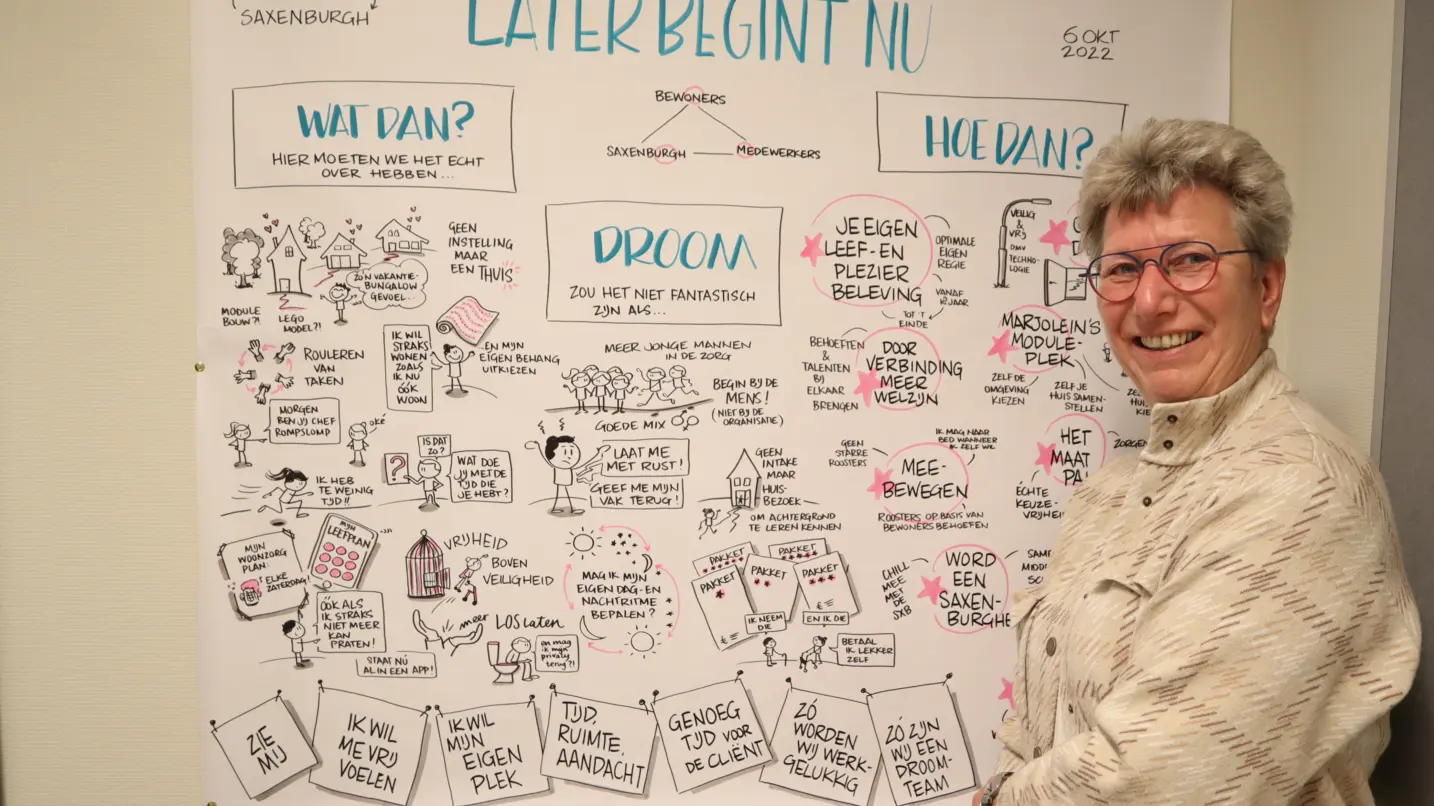 SAXENBURGH
LATER BEGINT NU
6 OKT
2022
WAT DAN?
HIER MOETEN WE HET ECHT
OVER HEBBEN...
BEWONERS
SAXENBURGH
MEDEWERKERS
HOE DAN?
DROOM
ZOU HET NIET FANTASTISCH
ZIJN ALS...
GEEN
INSTELLING
MAAR
EEN THUIS
ZO'N VAKANTIE-
BUNGALOW
GEVOEL...
MODULE
BOUW?!
LEGO
MODEL?!
ROULEREN
VAN
TAKEN
IK WIL
STRAKS
WONEN
ZOALS
IK NU
ÓÓK
WOON
EN MIJN
EIGEN BEHANG
UITKIEZEN
MORGEN
BEN JIJ CHEF
ROMPSLOMP
oké
IK HEB
TE WEINIG
TIJD!!
?
IS DAT
ZO?
WAT DOE
JIJ MET DE
TIJD DIE
JE HEBT?
MEER JONGE MANNEN
IN DE ZORG
GOEDE MIX
BEGIN BIJ DE
MENS!
(NIET BIJ DE
ORGANISATIE)
LAAT ME
MET RUST!
GEEF ME MIJN
VAK TERUG!
GEEN
INTAKE
MAAR
HUIS-
BEZOEK
OM ACHTERGROND
TE LEREN KENNEN
MIJN
WOONZORG
PLAN:
ELKE
ZATERDAG!
MIJN
LEEFPLAN
ÓÓK ALS
IK STRAKS
NIET MEER
KAN
PRATEN!
STAAT NÚ
AL IN EEN APP!
VRIJHEID
BOVEN
VEILIGHEID
meer LOSLATEN
en mag
ik mijn
privacy
terug?!
MAG IK MIJN
EIGEN DAG- EN
NACHTRITME
BEPALEN?
PAKKET
PAKKET
PAKKET
PAKKET
PAKKET
IK NEEM
DIE
EN IK DIE
BETAAL
IK LEKKER
ZELF
JE EIGEN
LEEF- EN
PLEZIER
BELEVING
OPTIMALE
EIGEN
REGIE
VANAF
TOT 'T
EINDE
VEILIG
&
VRIJ
DMV
TECHNO-
LOGIE
BEHOEFTEN
&
TALENTEN
BIJ
ELKAAR
BRENGEN
DOOR
VERBINDING
MEER
WELZIJN
MARJOLEIN'S
MODULE-
PLEK
ZELF DE
OMGEVING
KIEZEN
ZELF JE
HUIS SAMEN-
STELLEN
GEEN
STARRE
ROOSTERS
MEE-
BEWEGEN
IK MAG NAAR
BED WANNEER
IK ZELF WIL
ROOSTERS OP BASIS VAN
BEWONERS BEHOEFTEN
HET
MAAT
ÉCHTE
KEUZE-
CHILL
MEE
MET
DE
SXB
WORD
EEN
SAXEN-
BURGHE
ZIE
MIJ
IK WIL
ME VRIJ
VOELEN
IK WIL
MIJN
EIGEN
PLEK
TIJD,
RUIMTE,
AANDACHT
GENOEG
TIJD VOOR
DE CLIËNT
ZÓ
WORDEN
WIJ WERK-
GELUKKIG
ZÓ ZIJN
WIJ EEN
DROOM-
TEAM